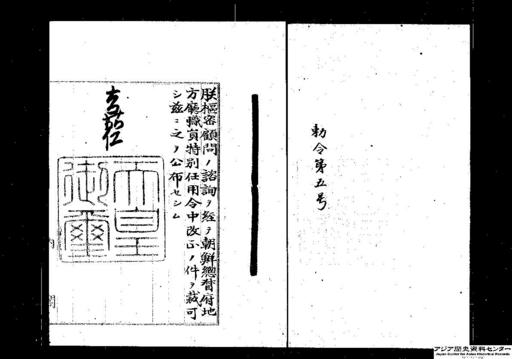 勅令第五号
朕枢密顧問ノ諮詢ヲ経テ朝鮮總督府地
方廳職員特別任用令中改正ノ件ヲ裁可
シ茲ニ之ヲ公布セシム
嘉仁
天皇
御璽
内閣
アジア歴史資料センター
Japan Center for Asian Historical Records